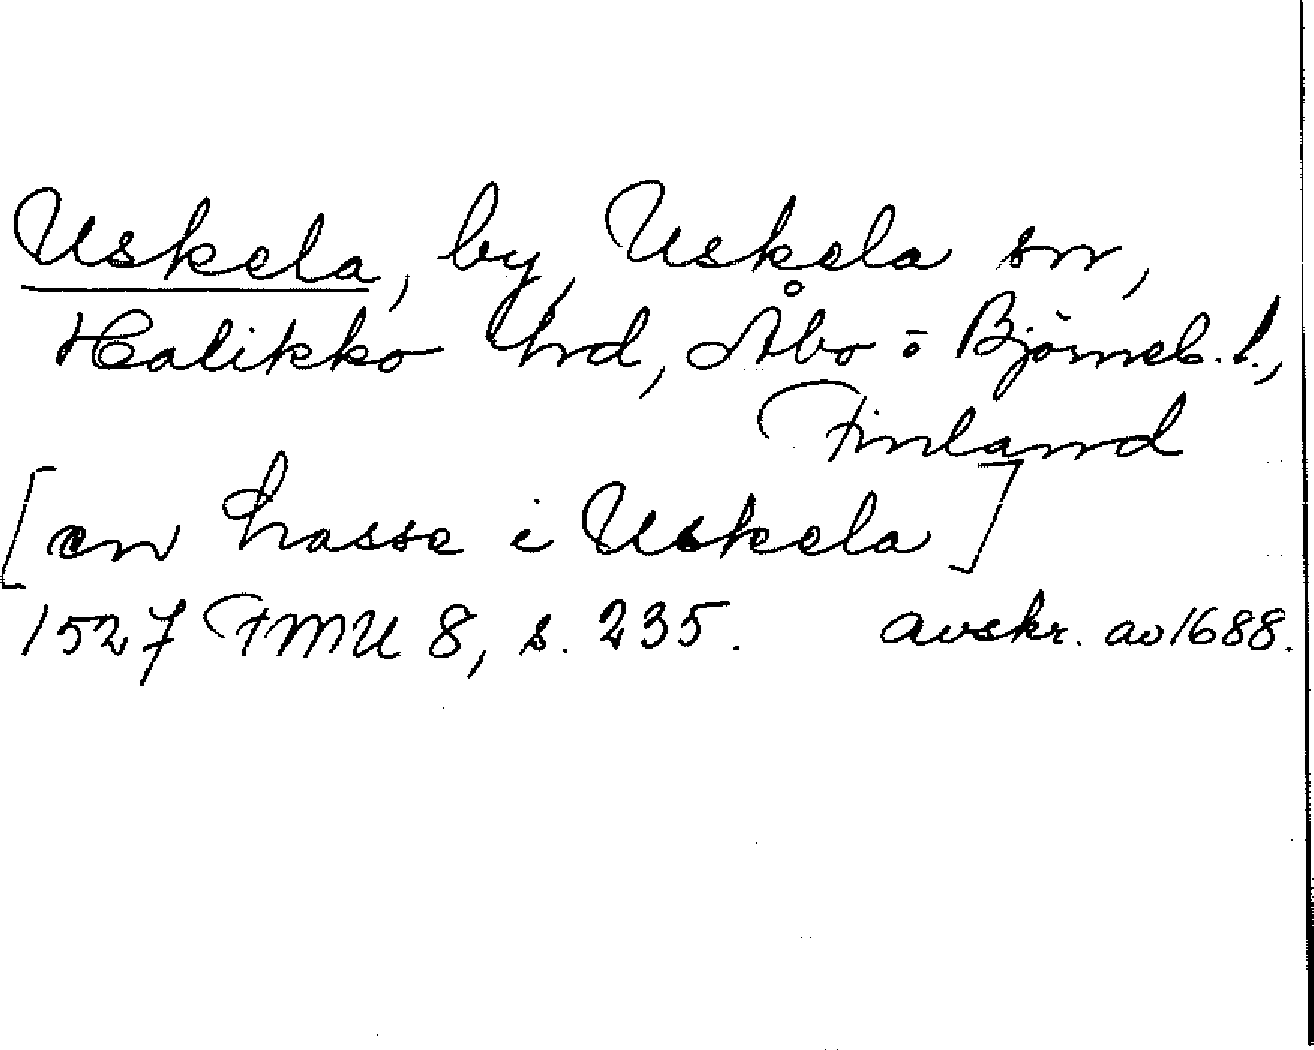 Uskela, by, Uskela sn,
Halikko hd, Åbo o Björneb. l.,
Finland
[en hasse i Uskela]
1527 FMU 8, s. 235. avskr. av 1688.